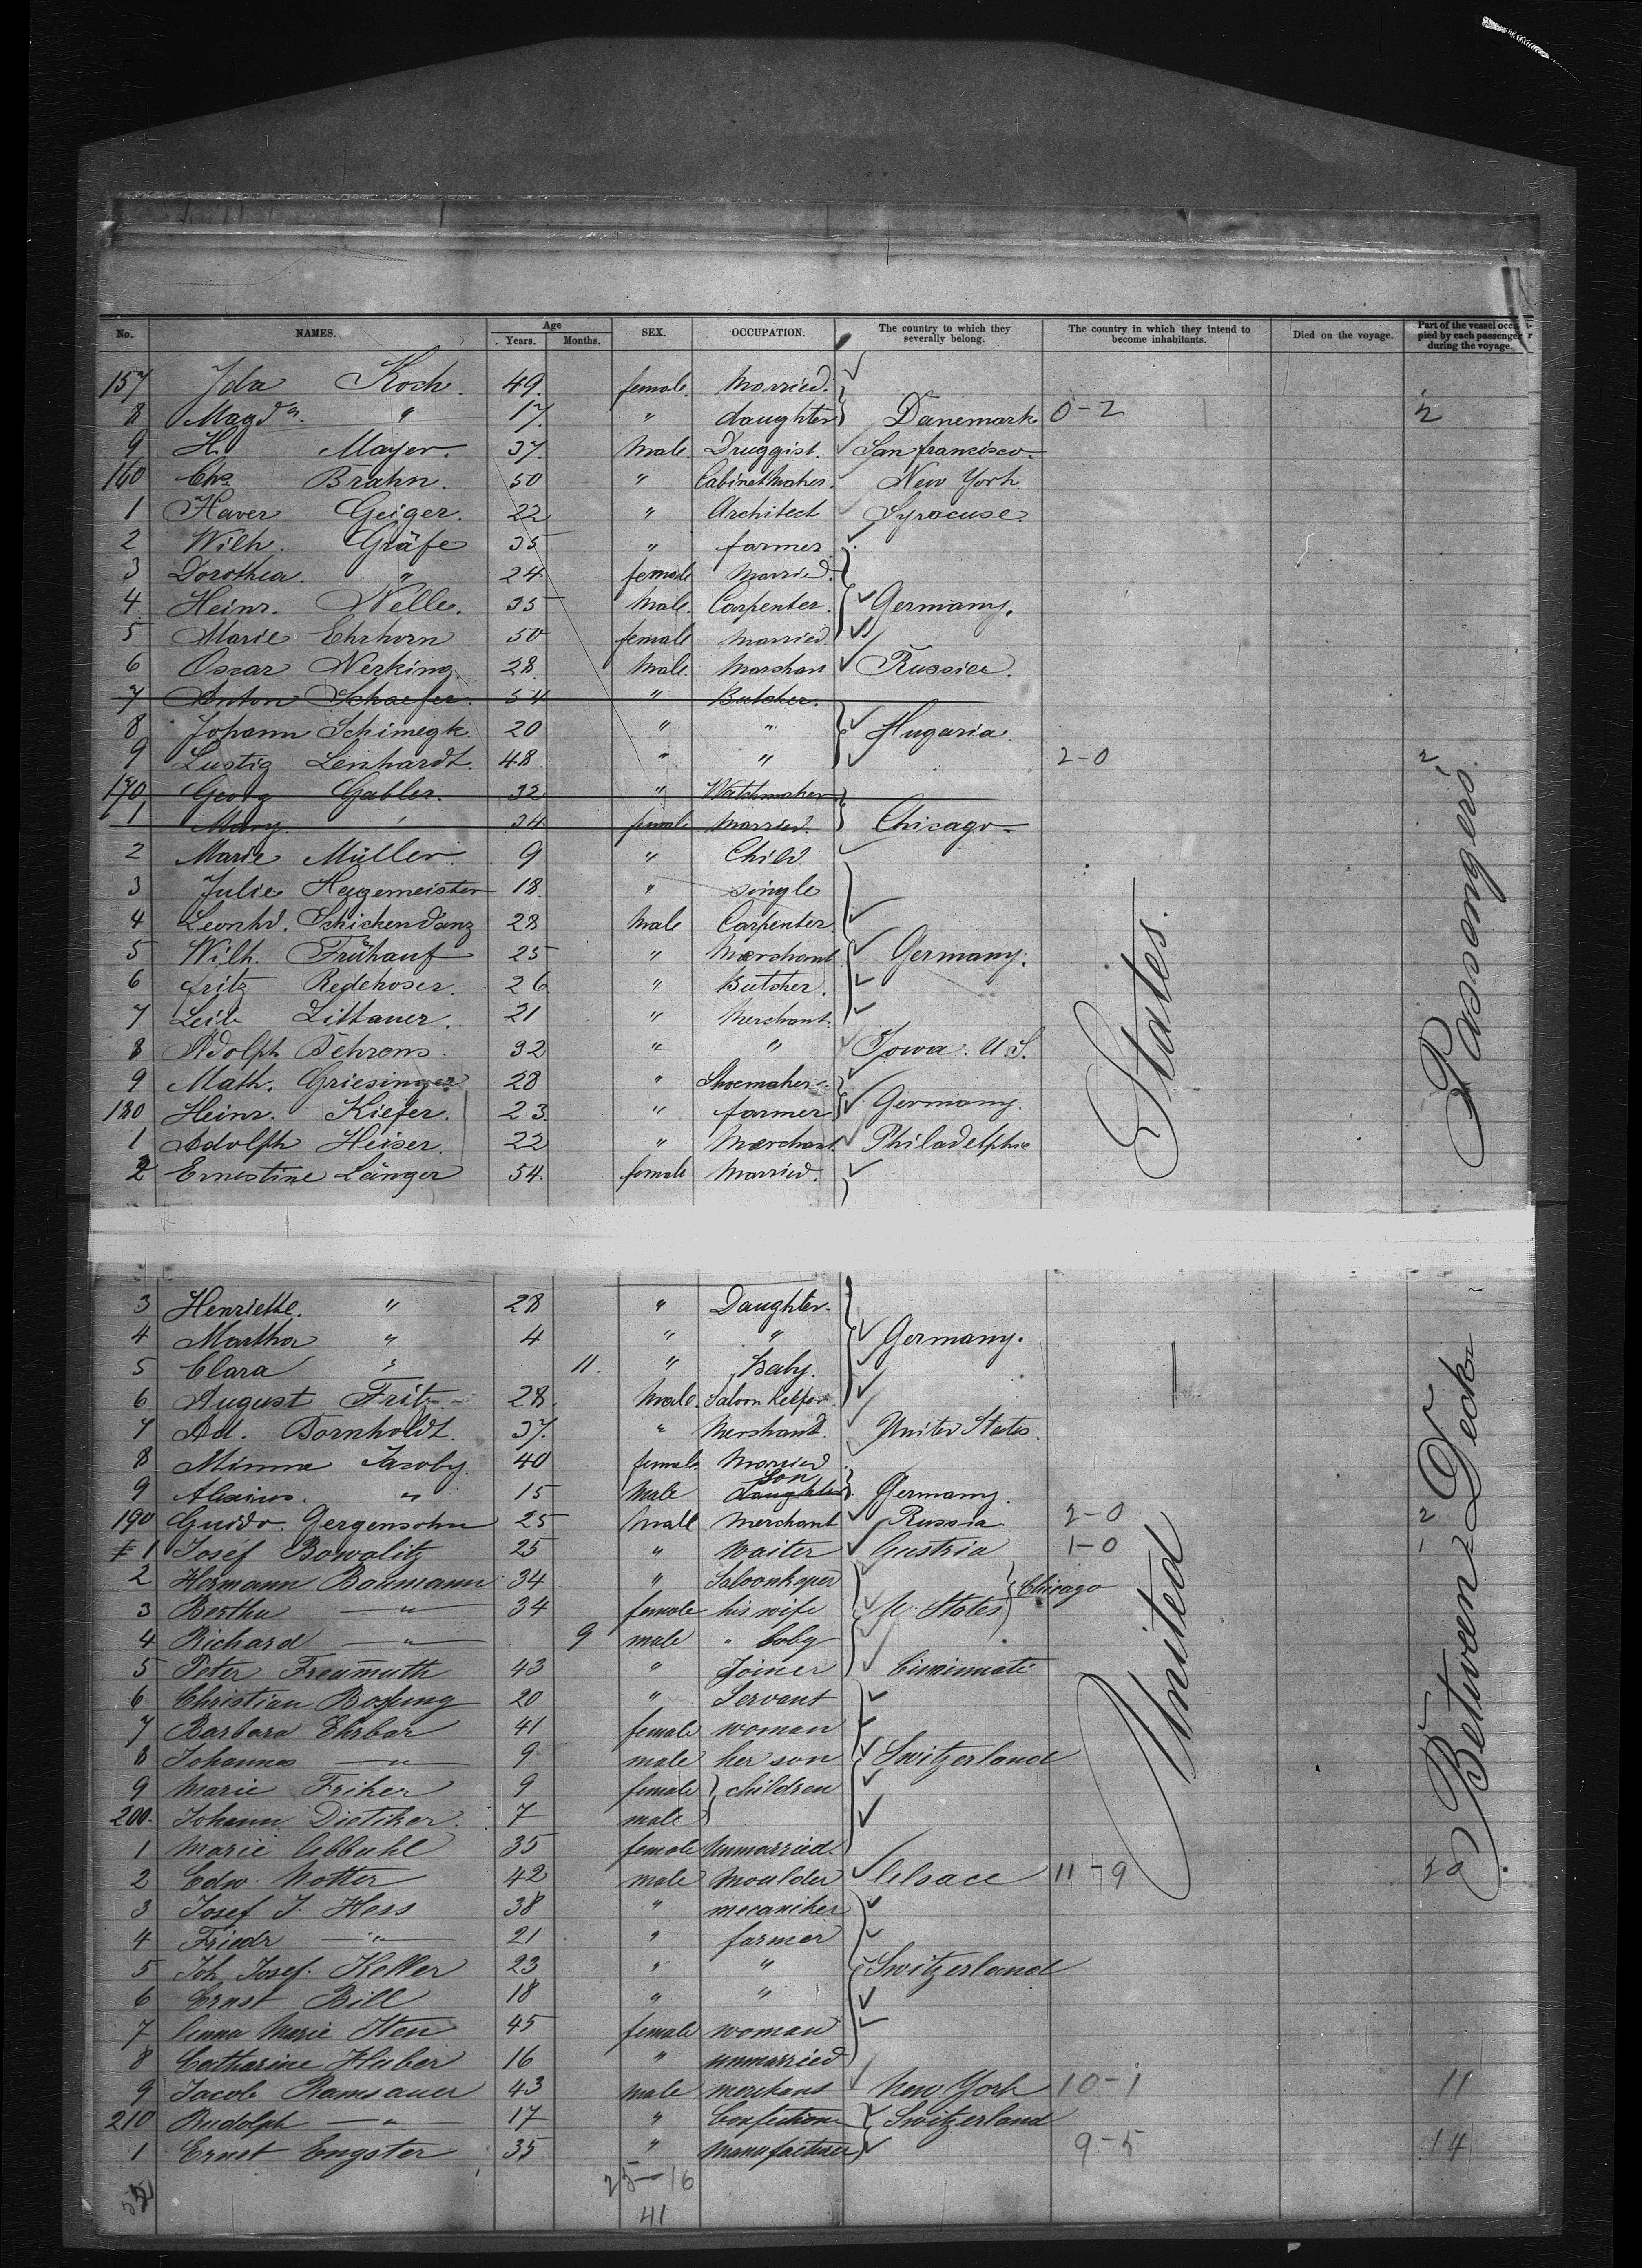 No. NAMES. Age Years. Months. SEX. OCCUPATION. The country to which they severally belong. The country in which they intend to become inhabitants. Died on the voyage. Part of the vessel occupied by each passenger during the voyage.
157 Ida Koch. 49. female. Married.
8 Magda. " 17. " daughter Danemark 0-2 2
9 H. Mayer. 37. Male. Druggist. San francisco.
160 Chs. Brahn. 50 " Cabinetmaker. New York
1 Xaver Geiger. 22 " Architect Syracuse.
2 Wilh. Gräfe 35 " farmer.
3 Dorothea. " 24 female Married.
4 Heinr. Nelle. 35 Male. Carpenter. Germany.
5 Marie Ehrhorn 50 female married.
6 Oscar Nerking. 28. Male. Marchan Russia.
7 Anton Schaefer. 54 " Butcher.
8 Johann Schimegk. 20 " " Hugaria
9 Lustig Lenhardt. 48. " " 2-0 2
170 Georg Gabler. 32 " Watchmaker
1 Mary " 34 female Married. Chicago
2 Marie Müller 9 " Child
3 Julie Hagemeister 18. " single
4 Leonhd. Schickendanz 28 Male Carpenter.
5 Wilh. Frühauf 25 " Marchant Germany.
6 Fritz Redehoser. 26 " Butcher.
7 Leib Littauer. 21 " Merchant.
8 Adolph Behrens. 32 " " Iowa. U.S.
9 Math. Griesinger 28 " Shoemaker.
180 Heinr. Kiefer. 23. " farmer Germany.
1 Adolph Heiser. 22 " Marchant Philadelphia
2 Ernestine Länger 54. female Married.
3 Henriette. " 28 " Daughter.
4 Martha " 4 " " Germany.
5 Clara " 11. " Baby.
6 August Fritz 28. Male. Saloon Keeper
7 Ad. Bornholdt. 37. " Merchant. United States.
8 Minna Jacoby. 40 female. Married
9 " 15 Male Daughter Son Germany.
190 Guido Gergensohn 25 Male Merchant Russia 2-0 2
1 Josef Bowalitz 25 " Waiter Austria 1-0 1
2 Hermann Baumann 34 " Saloonkeper
3 Bertha " 34 female his wife U. States Chicago
4 Richard " 9 male " baby
5 Peter Freimuth 43 " Joiner Cincinnati
6 Christian Bossung 20 " Servant
7 Barbara Ehrbar 41 female woman
8 Johannes " 9 male her son Switzerland
9 Marie Friker 9 female children
200. Johann Dietiker. 7 male
1 Marie Abbuhl 35 female Unmarried.
2 Edw. Notter 42 male Moulder Alsace 11-9 20
3 Josef J. Hess 38 " mecaniker
4 Friedr " 21 " farmer
5 Joh. Josef Keller 23 " " Switzerland
6 Ernst Bill 18 " "
7 Anna Marie Iten 45 female woman
8 Catharine Huber 16 " unmarried
9 Jacob Ramsauer 43 male merchant New York 10-1 11
210 Rudolph " 17 " Confection Switzerland
1 Ernst Engster 35 " Manufacturer 9-5 14
25-16
41
United States.
Between Deck Passengers.